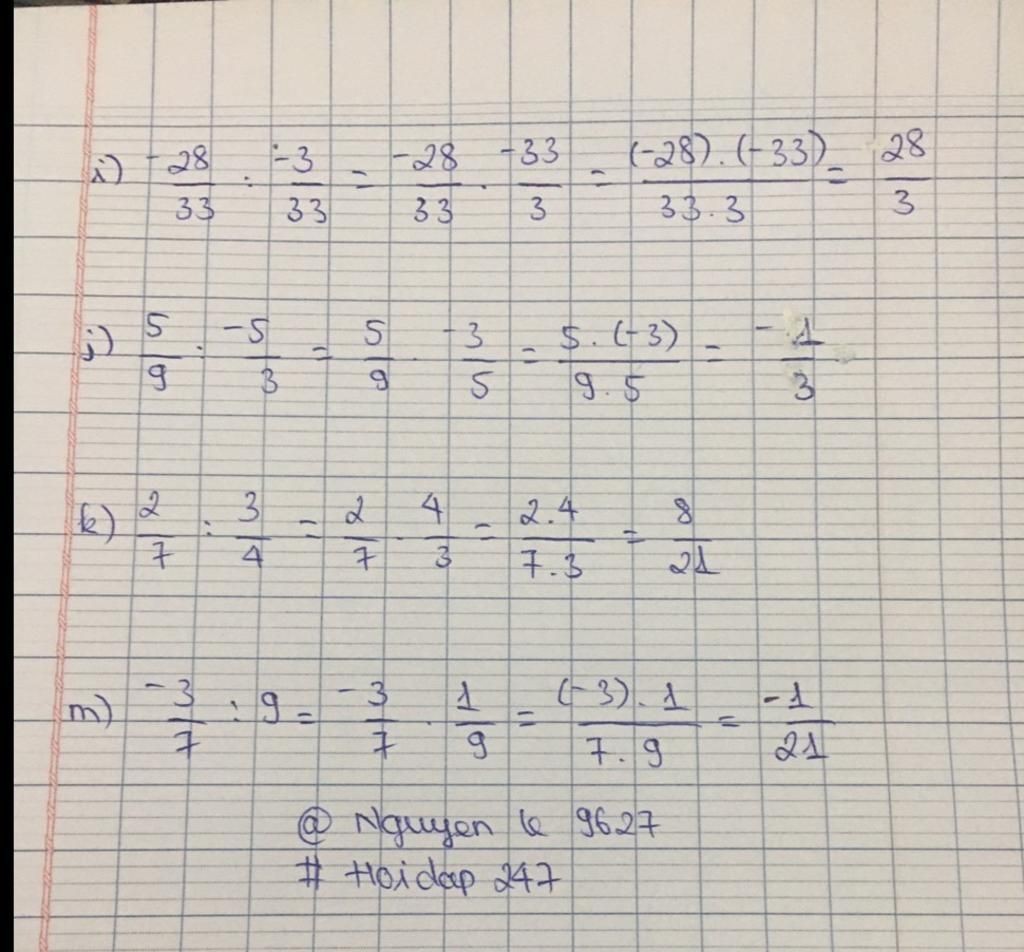 i) -28/33 : -3/33 = -28/33 . -33/3 = (-28).(-33)/33.3 = 28/3
j) 5/9 : -5/3 = 5/9 . -3/5 = 5.(-3)/9.5 = -1/3
k) 2/7 : 3/4 = 2/7 . 4/3 = 2.4/7.3 = 8/21
m) -3/7 : 9 = -3/7 . 1/9 = (-3).1/7.9 = -1/21
@ Nguyen le 9627
# Hoidap 247